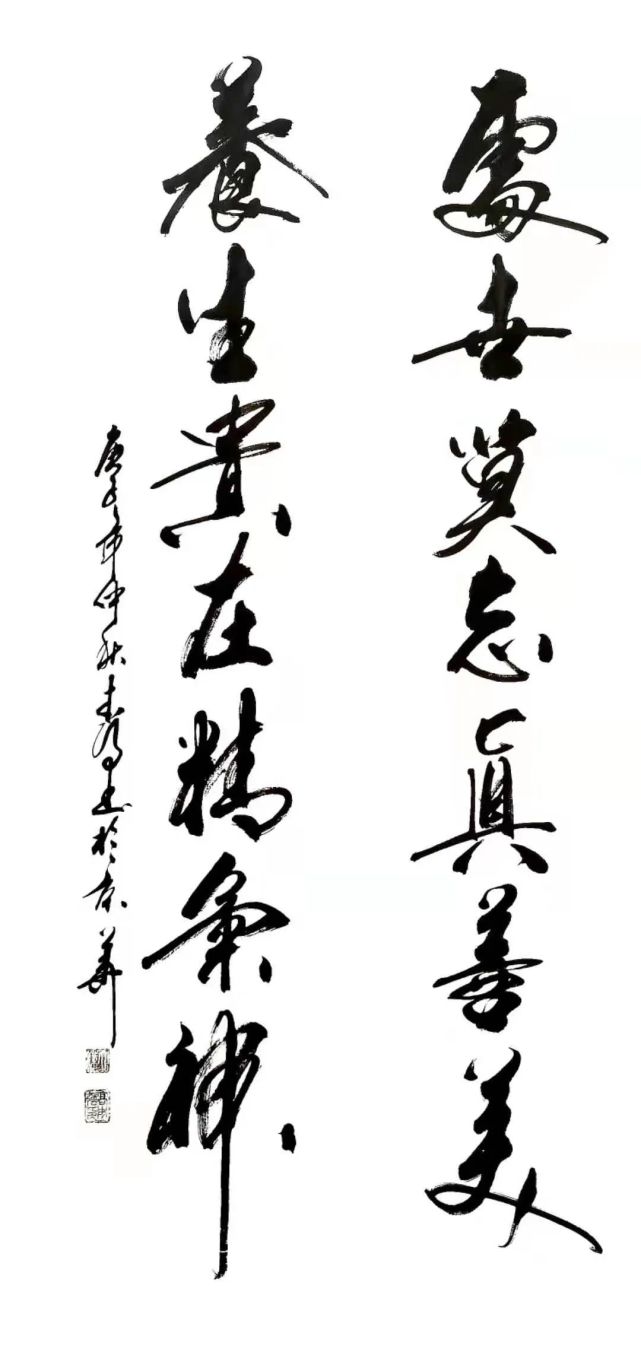 處世莫忘真善美
養生貴在精氣神
庚子年仲秋
書於京華